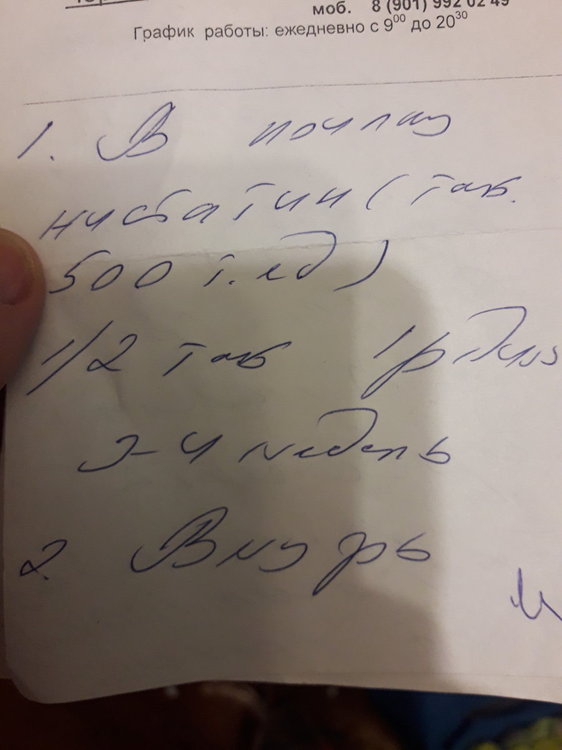 моб. 8 (901) 992 02 49
График работы: ежедневно с 9⁰⁰ до 20³⁰
1. В
нистатин (таб.
500 т. ед)
1/2 таб 1р
3-4 недель
2. Внутрь